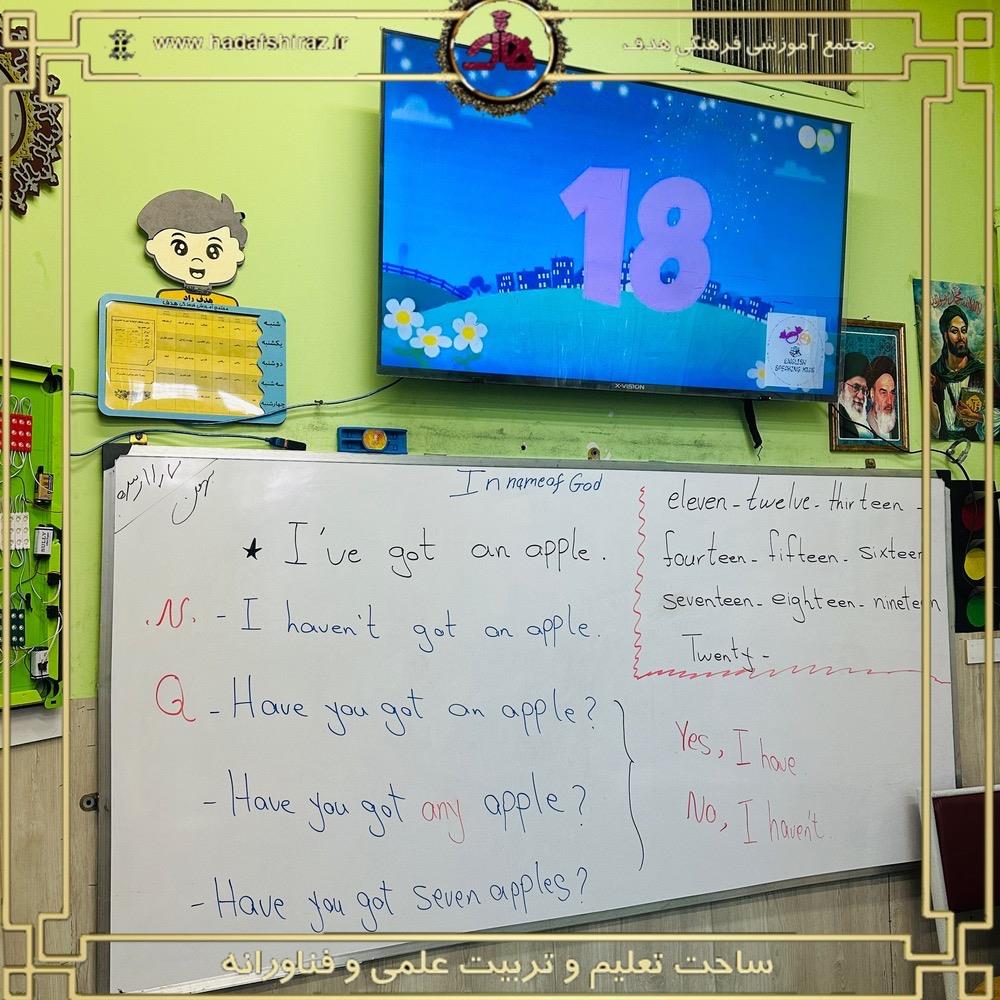 www.hadafshiraz.ir
مجتمع آموزشی فرهنگی هدف
18
ENGLISH
SPEAKING KIDS
X-VISION
هدف راد
شنبه
یکشنبه
دوشنبه
سه شنبه
چهارشنبه
In name of God
★ I've got an apple.
.N. - I haven't got an apple.
Q - Have you got an apple?
- Have you got any apple?
- Have you got seven apples?
eleven - twelve - thirteen -
fourteen - fifteen - sixteen
seventeen - eighteen - nineteen
Twenty -
Yes, I have
No, I haven't.
ساحت تعلیم و تربیت علمی و فناورانه